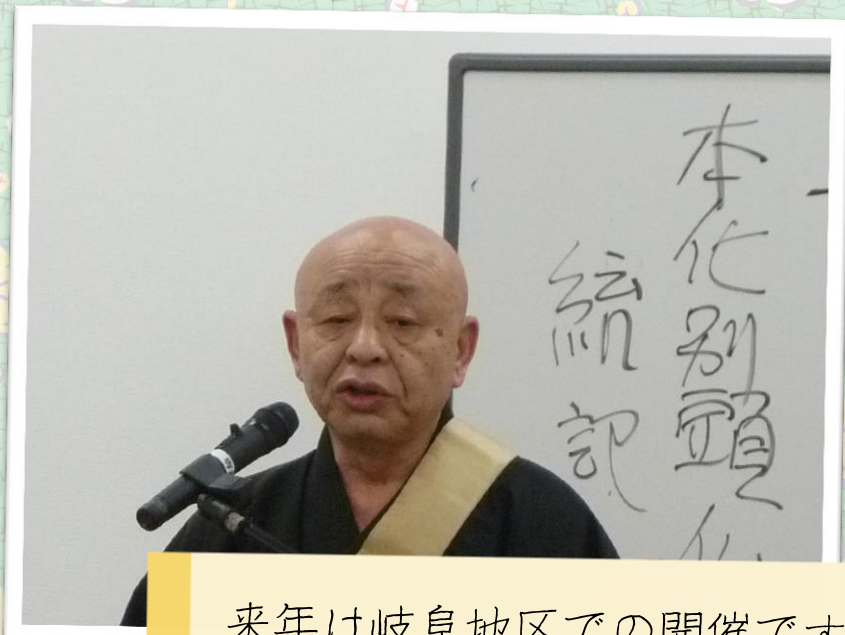 本化別頭仏
統記
来年は岐阜地区での開催です